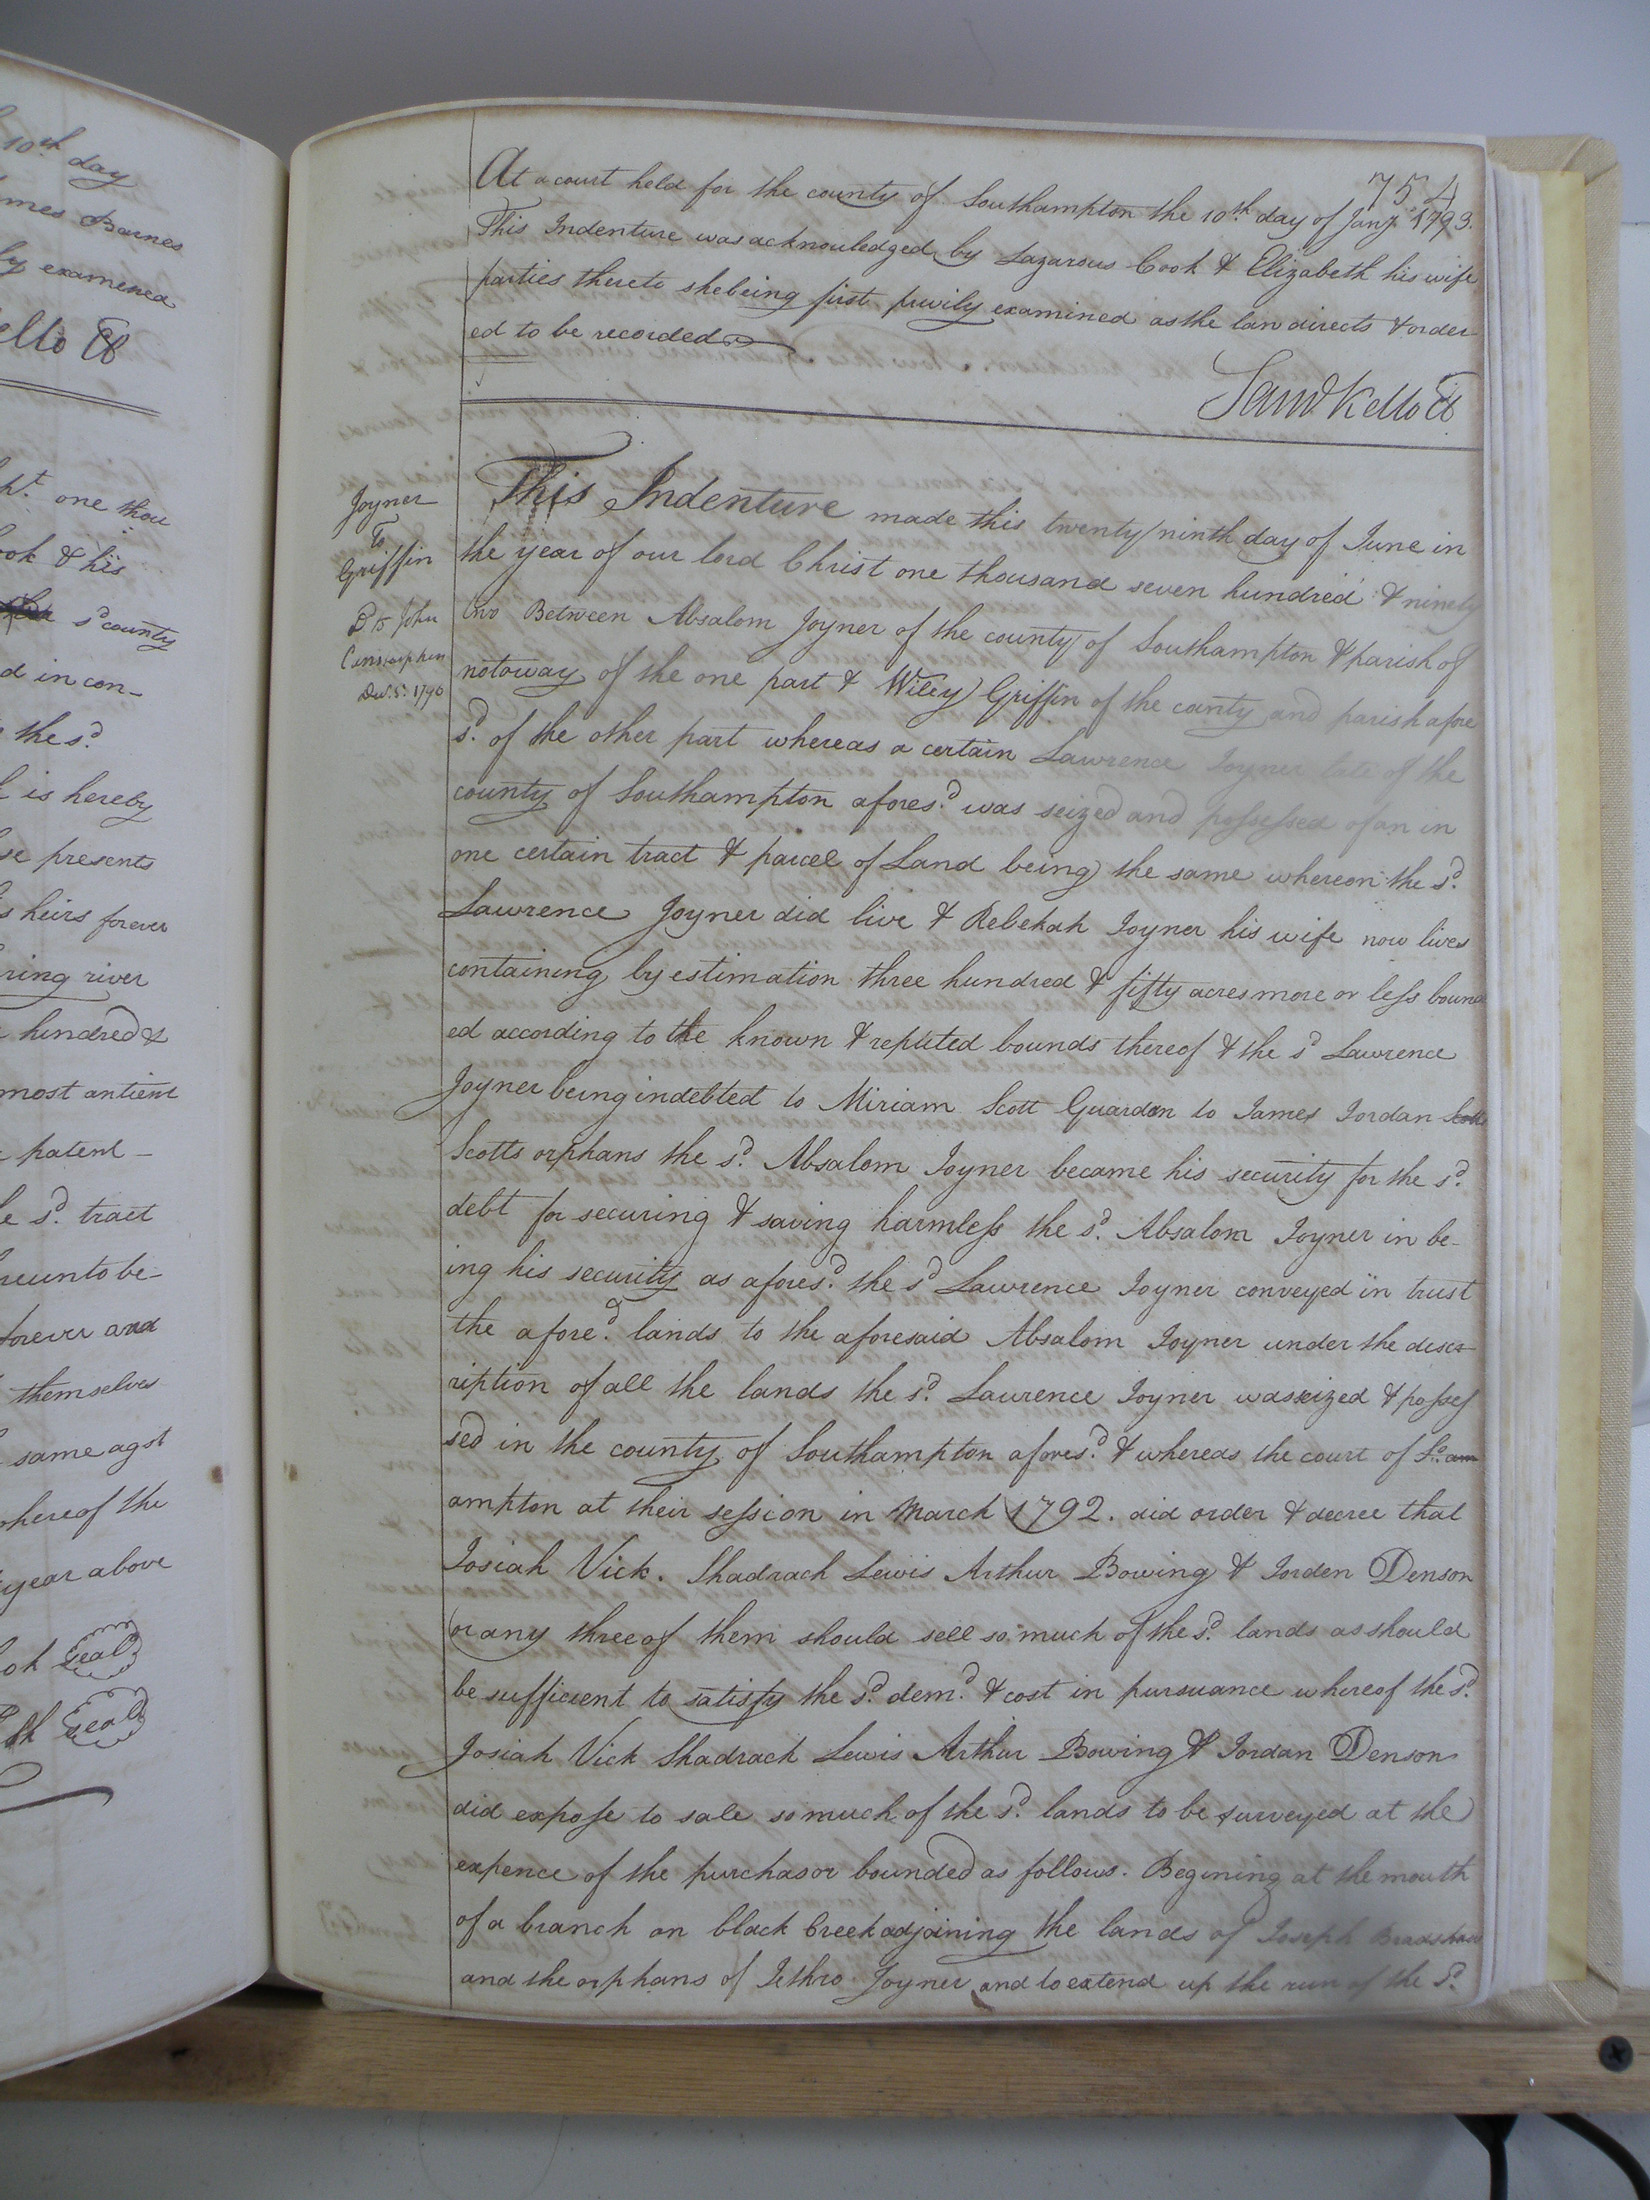 10th day
mes Barnes
ly examened
ello CC
pt. one thou
ook & his
sd county
d in con-
the sd.
is hereby
se presents
s heirs forever
ring river
hundred &
most antient
patent -
e sd. tract
reunto be-
forever and
themselves
same agst
whereof the
year above
ok Seal
th Seal
754
At a court held for the county of Southampton the 10th day of Jany. 1793.
This Indenture was acknowledged by Lazarous Cook & Elizabeth his wife
parties thereto she being first privily examined as the law directs & order-
ed to be recorded
Saml. Kello CC
Joyner
To
Griffin
Dd to John
Dec. 5. 1796
This Indenture made this twenty ninth day of June in
the year of our lord Christ one thousand seven hundred & ninety
two Between Absalom Joyner of the county of Southampton & parish of
notoway of the one part & Wiley Griffin of the canty and parish afore
sd. of the other part whereas a certain Lawrence Joyner late of the
county of Southampton afores.d was seized and possessed of an in
one certain tract & parcel of Land being the same whereon the sd.
Lawrence Joyner did live & Rebekah Joyner his wife now lives
containing by estimation three hundred & fifty acres more or less bound
ed according to the known & reputed bounds thereof & the sd Lawrence
Joyner being indebted to Miriam Scott Guardan to James Jordan Scotts
Scotts orphans the sd. Absalom Joyner became his security for the sd.
debt for securing & saving harmless the sd. Absalom Joyner in be-
ing his security as afores.d the sd Lawrence Joyner conveyed in trust
the afore.d lands to the aforesaid Absalom Joyner under the desc-
ription of all the lands the sd. Lawrence Joyner was seized & posses
sed in the county of Southampton afores.d & whereas the court of So. am
ampton at their session in March 1792. did order & decree that
Josiah Vick. Shadrach Lewis Arthur Bowing & Jorden Denson
or any three of them should sell so much of the sd. lands as should
be sufficient to satisfy the sd. dem.d & cost in pursuance whereof the sd.
Josiah Vick Shadrack Lewis Arthur Bowing & Jordan Denson
did expose to sale so much of the sd. lands to be surveyed at the
expence of the purchasor bounded as follows. Begining at the mouth
of a branch on black Creek adjoining the lands of Joseph Bradshaw
and the orphans of Jethro Joyner and to extend up the run of the sd.